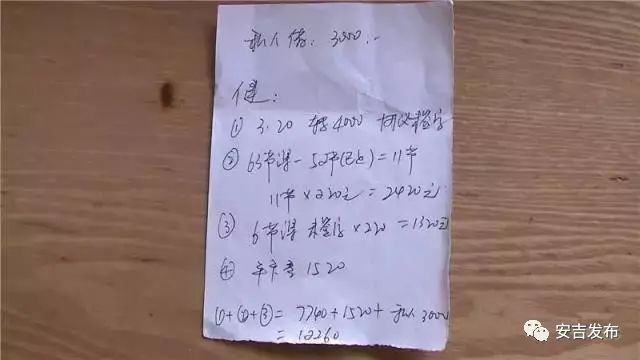 私人借: 3000.-
健:
① 3.20 转4000
② 63节课-52节(已上)=11节
11节×220元=2420元
③ 6节课 未签字×220=1320元
④ 年卡壹1520
①+②+③=7740+1520+私人3000
=12260
安吉发布